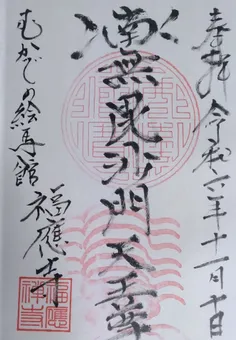 奉拝 令和六年十一月十日
南無毘沙門天王尊
むかでの絵馬館
福應寺
福應禅寺